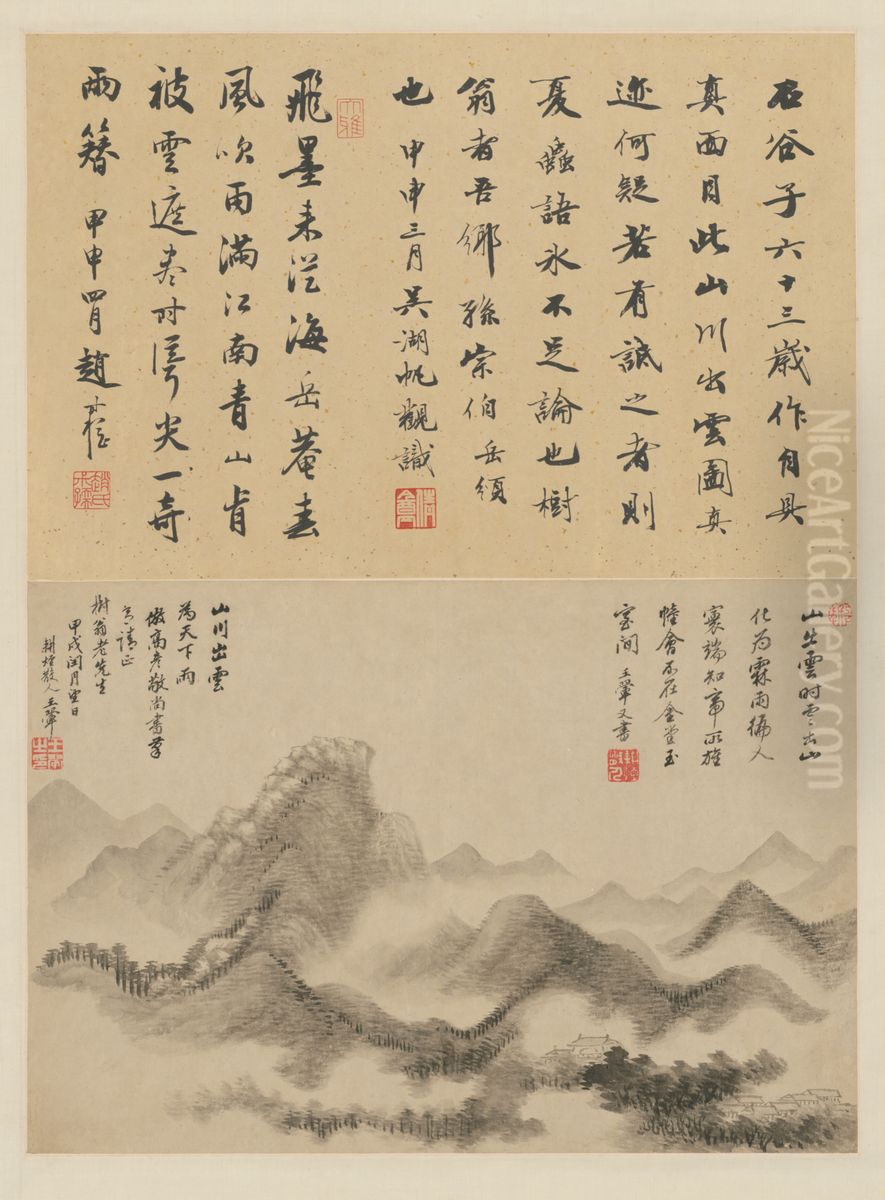 石谷子六十三歲作自具
真面目此山川出雲圖真
迹何疑若有詆之者則
夏蟲語冰不足論也樹
翁者吾鄉孫宗伯岳頒
也甲申三月吳湖帆觀識
飛墨來從海岳菴春
風吹雨滿江南青山肯
被雲遮盡時學尖一奇
雨簪甲申四月趙叔孺
山出雲時雲出山
化為霖雨徧人
寰端知帝所雄
幢會不在金堂玉
室間 王翬又書
山川出雲
為天下雨
倣高彥敬尚書筆
意請正
樹翁老先生
甲戌閏月望日
耕煙散人王翬
NiceArtGallery.com